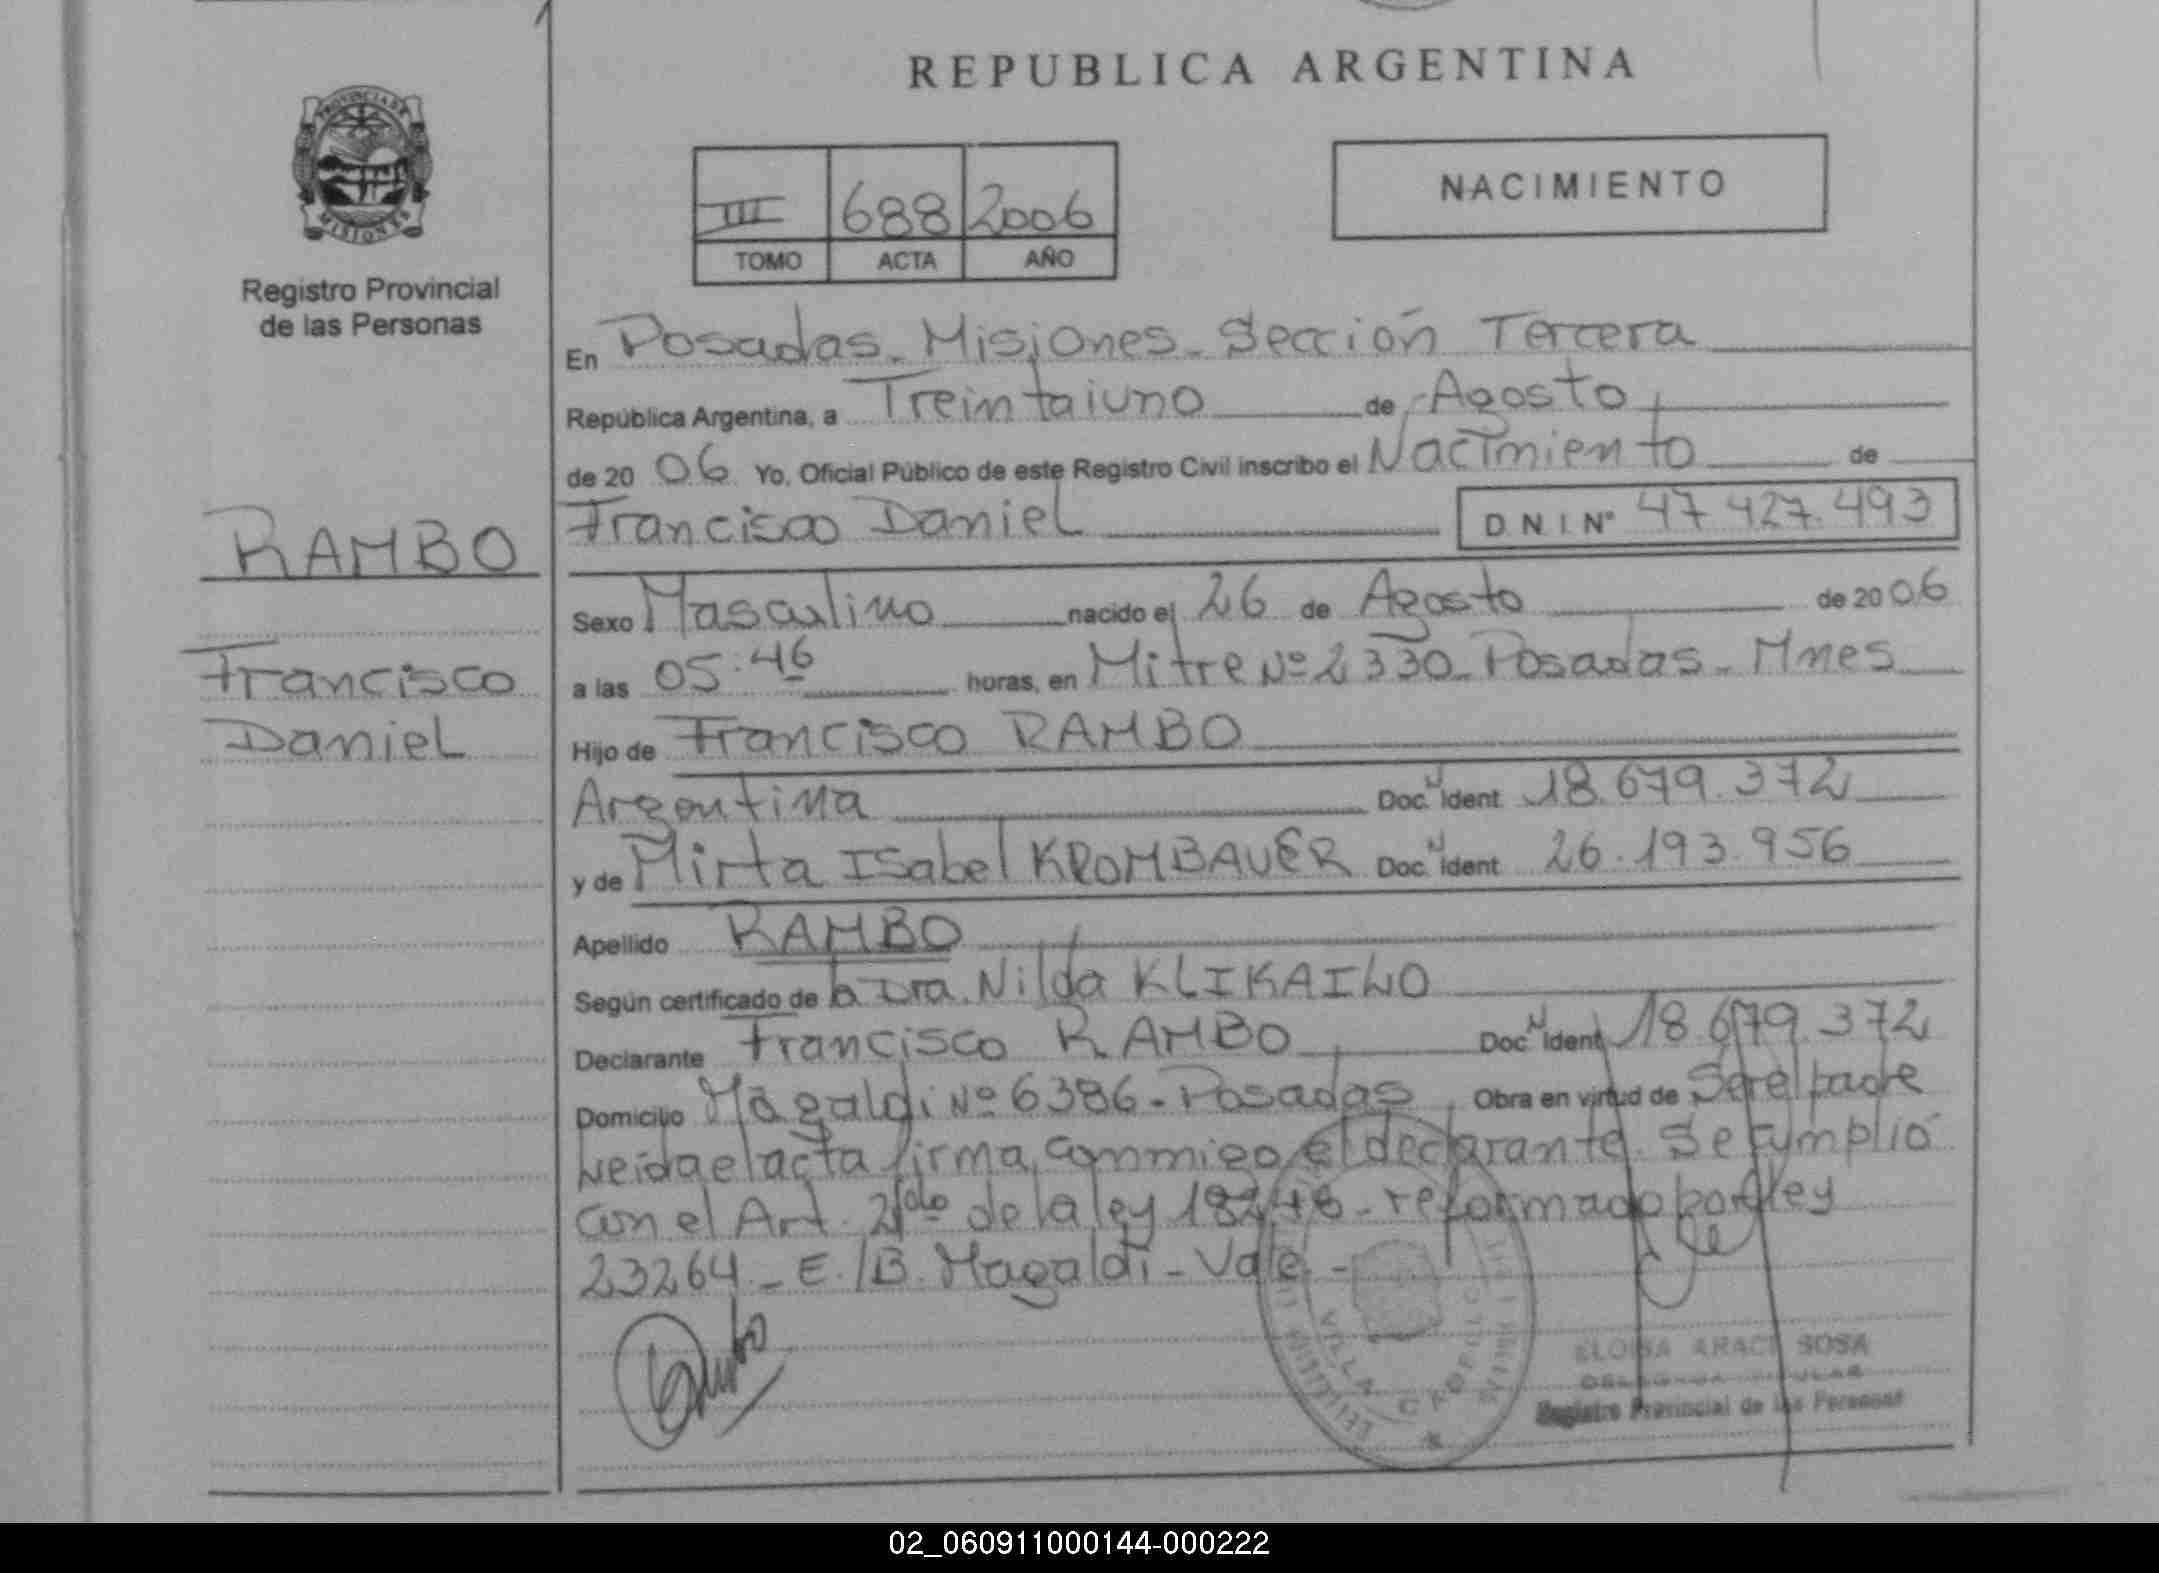 REPUBLICA ARGENTINA
PROVINCIA DE
MISIONES
Registro Provincial
de las Personas
III 688 2006
TOMO ACTA AÑO
NACIMIENTO
En Posadas - Misiones - Sección Tercera
República Argentina, a Treintaiuno de Agosto
de 20 06 Yo, Oficial Público de este Registro Civil inscribo el Nacimiento de
Francisco Daniel D N I Nº 47 427.493
RAMBO
Francisco
Daniel
Sexo Masculino nacido el 26 de Agosto de 20 06
a las 05:46 horas, en Mitre Nº 2330 - Posadas - Mnes
Hijo de Francisco RAMBO
Argentina Doc. Ident 18.679.372
y de Mirta Isabel KROMBAUER Doc. Ident 26.193.956
Apellido RAMBO
Según certificado de la Dra. Nilda
Declarante Francisco RAMBO Doc Ident 18.679.372
Domicilio Magaldi Nº 6386 - Posadas Obra en virtud de Ser el padre
Leida el acta firma conmigo el declarante. Se cumplió
con el Art. 2do de la ley 18248 - reformado por ley
23264 - E./B. Magaldi - Vale -
VILLA CABELLO
SOSA
Registro Provincial de las Personas
02_060911000144-000222